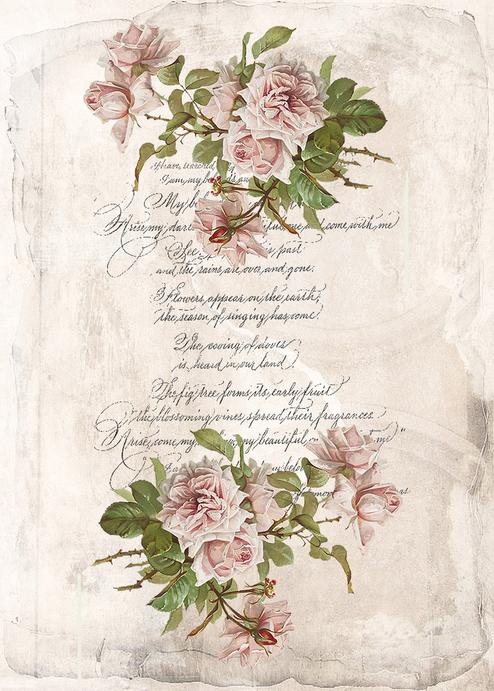 I am my
My
Arise, my and come with me
See, is past
and the rains are over and gone.
Flowers appear on the earth,
the season of singing has come
The cooing of doves
is heard in our land
The fig tree forms its early fruit
the blossoming vines spread their fragrances.
Arise, come, my my beautiful me"